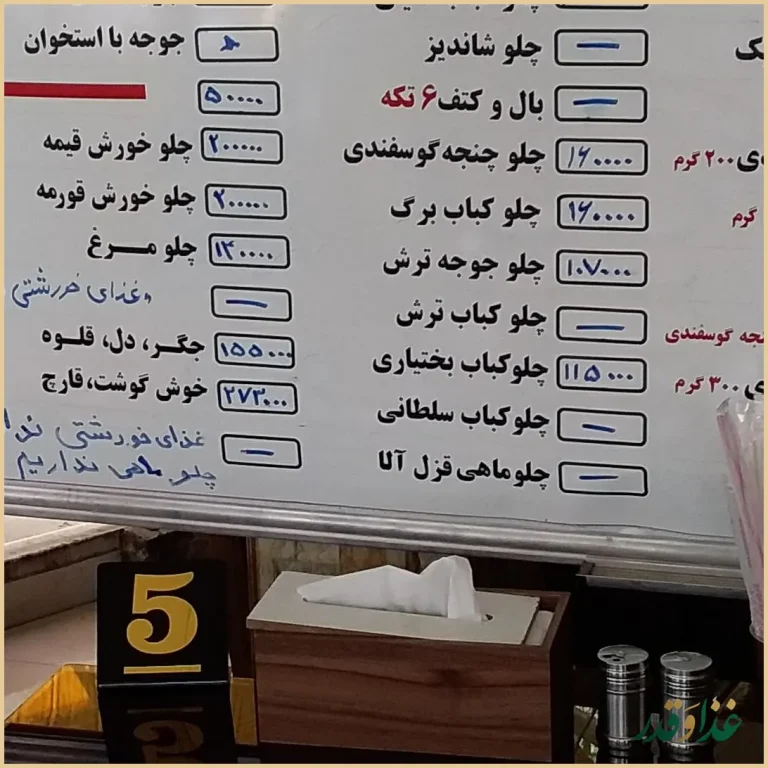 چلو شاندیز —
بال و کتف ۶ تکه —
چلو چنجه گوسفندی ۱۶۰۰۰۰
چلو کباب برگ ۱۶۰۰۰۰
چلو جوجه ترش ۱۰۷۰۰۰
چلو کباب ترش —
چلوکباب بختیاری ۱۱۵۰۰۰
چلوکباب سلطانی —
چلو ماهی قزل آلا —
جوجه با استخوان
۵۰۰۰۰
چلو خورش قیمه ۲۰۰۰۰۰
چلو خورش قورمه ۲۰۰۰۰۰
چلو مرغ ۱۴۰۰۰۰
غذای خورشتی —
جگر، دل، قلوه ۱۵۵۰۰۰
خوش گوشت، قارچ ۲۷۳۰۰۰
غذای خورشتی —
چلو ماهی نداریم
ی ۲۰۰ گرم
گرم
گوسفندی
ی ۳۰۰ گرم
5
غذا و قدر